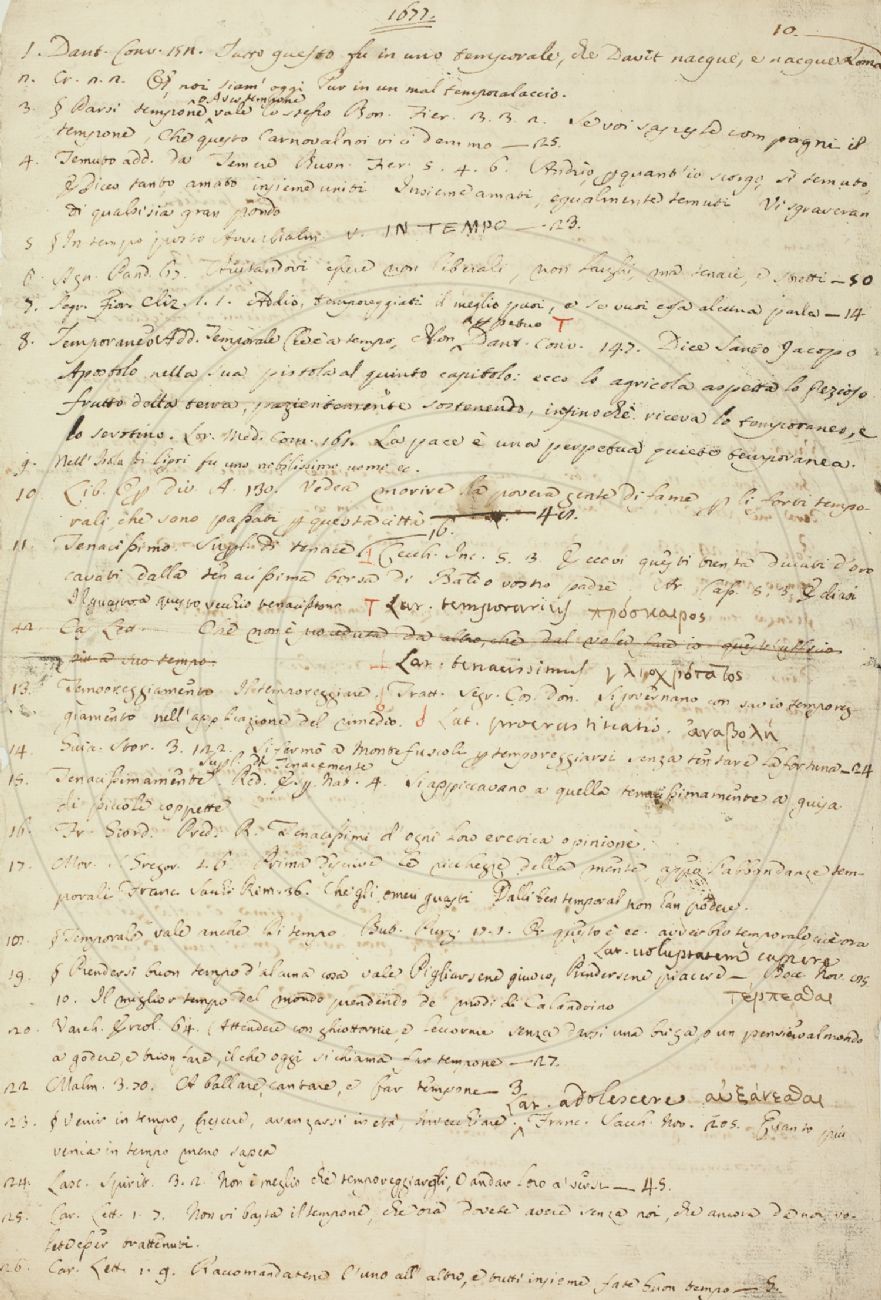 1677.
10.
1. Dant. Conv. 151. Tutto questo fu in uno temporale, che Davit nacque, e nacque Roma
2. Cr. 2. 2. noi siam' oggi Pur in un mal temporalaccio.
o Aver tempone
3. § Darsi tempone, vale lo stesso Bon. Fier. 3. 3. 2. Se voi sapeste compagni il
tempone, Che questo Carnoval noi ci demmo — 25.
4. Temuto add. da Temere Buon. Fier. 5. 4. 6. Andrò, p quant' io scorgo, sì temuto,
E dico tanto amato insieme uniti Insieme amati, egualmente temuti Vi sgraveran
di qualsisia gran pondo
5 § In tempo posto Avverbialm. v. IN TEMPO — 23.
6. Agn. Pand. 67. essere non liberali, non larghi, ma tenaci, e stretti — 50
7. Segr. Fior. Cliz. 1. 1. Addio, temporeggiati il meglio puoi, e se vuoi cosa alcuna parla — 14
perpetuo T
8. Temporaneo Add. Temporale Che è a tempo, e Non Dant. Conv. 147. Dice Santo Jacopo
Apostolo nella sua pistola al quinto capitolo: ecco lo agricola aspetta lo prezioso
frutto della terra, pazientemente sostenendo, infino che riceva lo temporaneo, e
lo serotino. Lor. Med. Com. 161. La pace è una perpetua quiete temporanea.
9. Nell' Isola di Lipri fu uno nobilissimo uomo ec.
10. Lib. Op. div. A. 130. Vedea morire la povera gente di fame p li forti tempo-
rali, che sono passati p questa città 16.
11. Tenacissimo. Superl. di tenace Cecch. Inc. 5. 3. E eccovi questi trenta ducati d'oro
cavati dalla tenacissima borsa di vostro padre
Il guastava questo vecchio tenacissimo T Lat. temporarius πρόσκαιρος
12. Ca Leo Che non è
più a suo tempo. Lat. tenacissimus γλισχρότατος
13. Temporeggiamento Il temporeggiare. Tratt. Segr. Cos. Don. Si governano con savio temporeg-
giamento nell' applicazione del rimedio. Lat. procrastinatio. ἀναβολή
14. Guic. Stor. 3. 122. Si fermò a Montefuscoli p temporeggiarsi senza tentare la fortuna — 24
Superl. di Tenacemente
15. Tenacissimamente Red. Esp. Nat. 4. Si appiccavano a quella tenacissimamente a guisa
di piccole coppette
16. Fr. Giord. Pred. R. Tenacissimi d' ogni loro eretica opinione.
17. Mor. S. Gregor. 1. 6. Prima descrive le ricchezze della mente, appo l' abbondanze tem-
porali Franc. Sacch. Rim. 36. Che gli omeri guasti Dalli ben temporal' non l'an podere.
18. § Temporale vale anche Di tempo But. Purg. 17. 1. E questo è ec. avverbio temporale cioè ora
Lat. voluptatem capere
19. § Prendersi buon tempo d' alcuna cosa vale Pigliarsene giuoco, Prendersene piacere — Bocc. Nov. 85.
10. Il miglior tempo del mondo prendendo de' modi di Calandrino τέρπεσθαι
20. Varch. Ercol. 64. Attendere con ghiottornie, e leccornie senza darsi una briga, o un pensiero al mondo
a godere, e trionfare, il che oggi si chiama far tempone — 27.
22. Malm. 3. 70. A ballare, cantare, e far tempone — 3
Lat. adolescere αὐξάνεσθαι
23. § Venir in tempo, Crescere, avanzarsi in età, Invecchiare. Franc. Sacch. Nov. 205. Quanto più
venia in tempo meno sapea
24. Lasc. Spirit. 3. 2. Non è meglio che temporeggiargli, O andar loro a' versi — 45.
25. Car. Lett. 1. 7. Non vi basta il tempone, che ora dovete avere senza noi, che ancora da noi vo-
lete esser trattenuti.
26. Car. Lett. 1. 9. Raccomandatene l' uno all' altro, e tutti insieme fate buon tempo — 8.